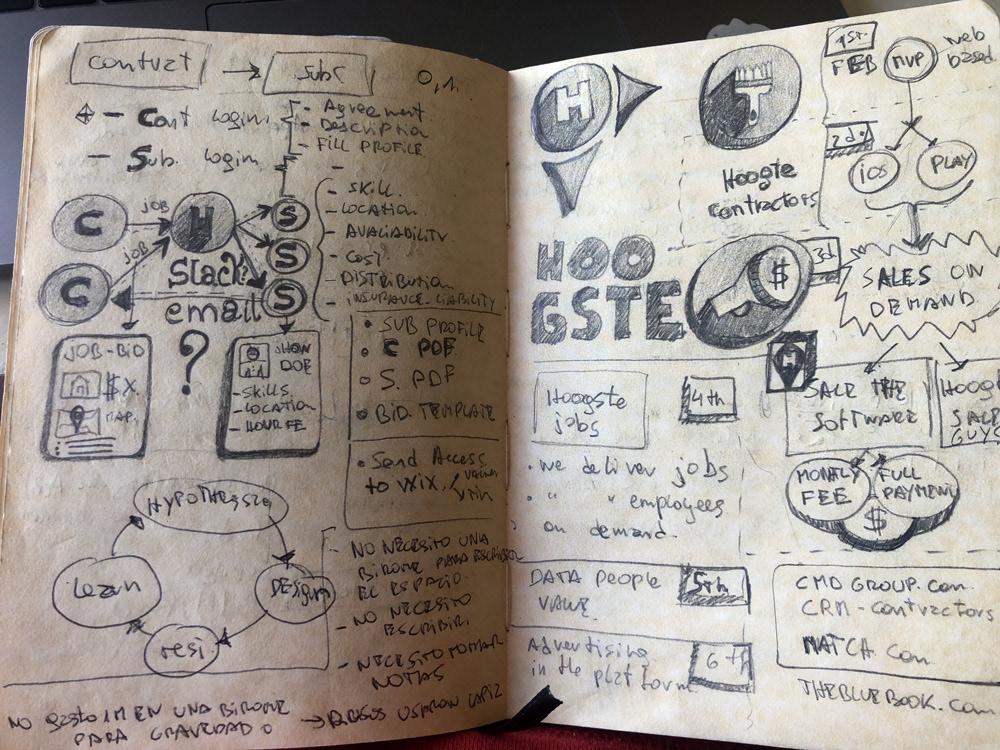 contract → subs
0,1.
- Cont login.
- Sub. login
- Agreement
- Description
- Fill PROFILE
- SKILL.
- LOCATION
- AVALIABILITY.
- COST
- DISTRIBUTION
- INSURANCE-LIABILITY
C JOB H S
S
C JOB S
Slack?
email
JOB-BID
$X.
MAP.
?
JHON
DOE
- SKILLS.
- LOCATION
- HOUR FE
• SUB PROFILE
• C PDF
• S. PDF
• BID. TEMPLATE
• Send Access
to WIX,
HYPOTHESIS
DESIGN
TEST
Learn
- NO NECESITO UNA
BIROME PARA ESCRIBIR
EL ESPACIO.
- NO NECESITO
ESCRIBIR.
- NECESITO TOMAR
NOTAS
NO GASTO 1M EN UNA BIROME
PARA GRAVEDAD 0 → RUSOS USARON LAPIZ
H
T
Hoogte
contractors
1ST.
FEB
MVP
web
based.
2d.
iOS
PLAY
HOO
GSTE
$
3d
SALES ON
DEMAND
H
SALE THE
SOFTWARE
HOOG
SALE
GUYS
MONTLY
FEE
FULL
PAYMENT
$
Hoogste
jobs
4th
• we deliver jobs
• " " employees
on demand.
DATA People
VALUE.
5th
Advertising
in the platform.
6th
CMD GROUP.com
CRM-contractors
MATCH.com.
THEBLUEBOOK.com